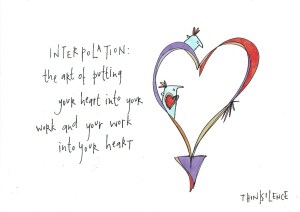 INTERPOLATION:
the art of putting
your heart into your
work and your work
into your heart
THINKSILENCE